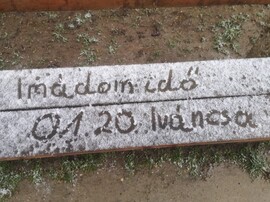 Imádom idő
01.20 Iváncsa